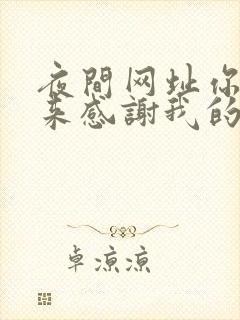 夜間网址你
来感謝我的
卓凉凉